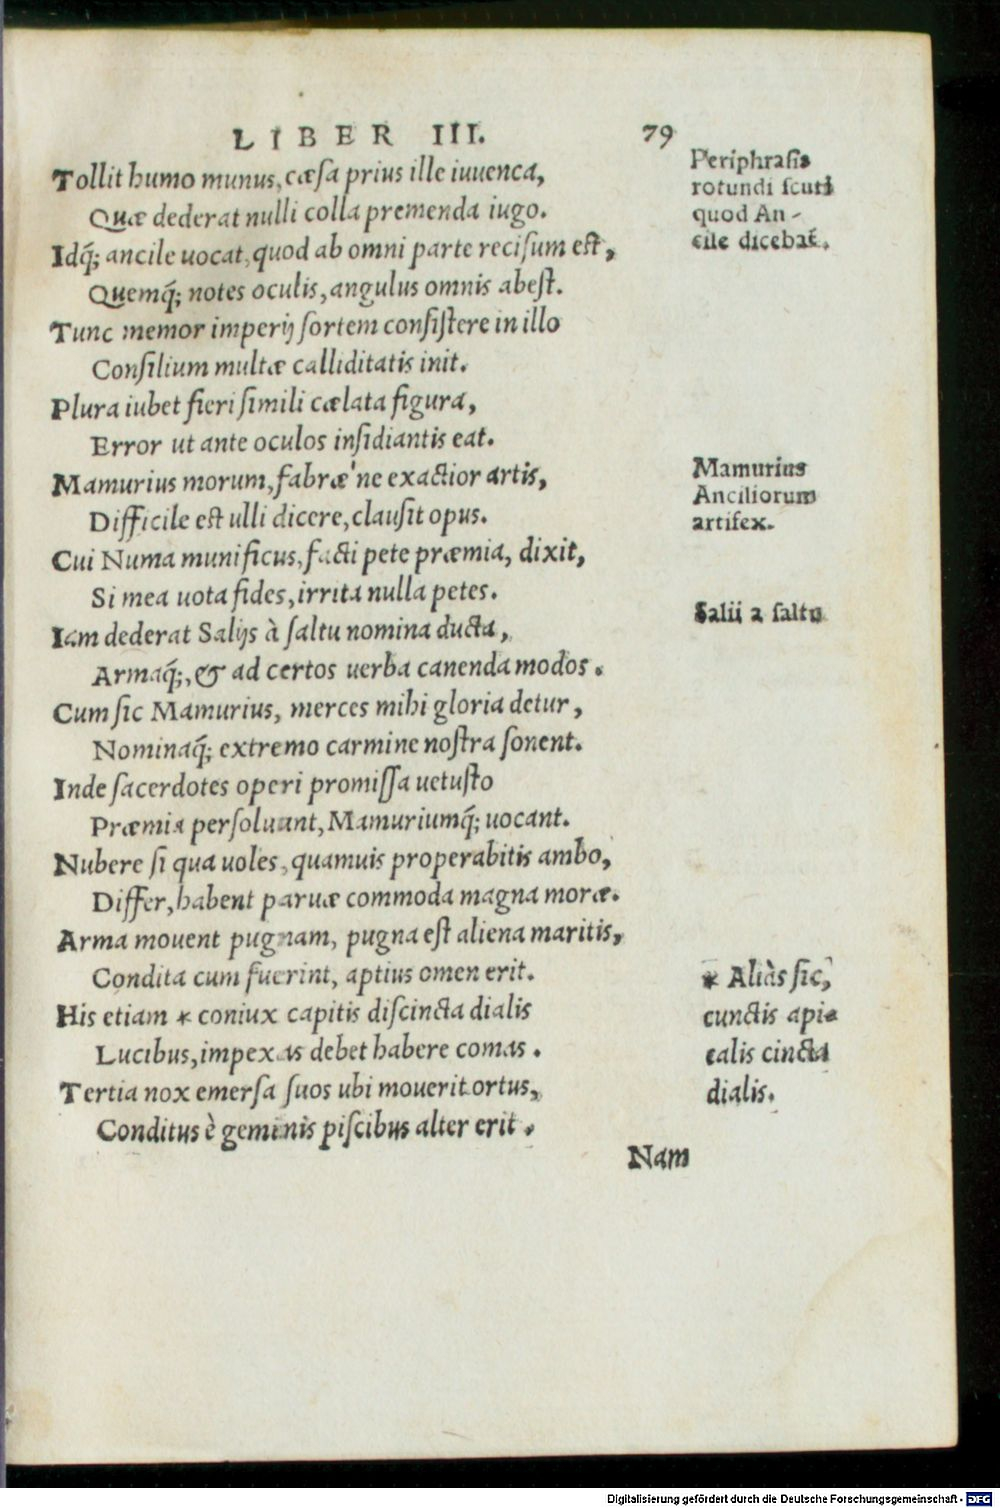 LIBER III. 79
Tollit humo munus, cæsa prius ille iuuenca,
Quæ dederat nulli colla premenda iugo.
Idq́; ancile uocat, quod ab omni parte recisum est,
Quemq́; notes oculis, angulus omnis abest.
Tunc memor imperij sortem consistere in illo
Consilium multæ calliditatis init.
Plura iubet fieri simili cælata figura,
Error ut ante oculos insidiantis eat.
Mamurius morum, fabræ'ne exactior artis,
Difficile est ulli dicere, clausit opus.
Cui Numa munificus, facti pete præmia, dixit,
Si mea uota fides, irrita nulla petes.
Iam dederat Salijs à saltu nomina ducta,
Armaq́;, & ad certos uerba canenda modos.
Cum sic Mamurius, merces mihi gloria detur,
Nominaq́; extremo carmine nostra sonent.
Inde sacerdotes operi promissa uetusto
Præmia persoluunt, Mamuriumq́; uocant.
Nubere si qua uoles, quamuis properabitis ambo,
Differ, habent paruæ commoda magna moræ.
Arma mouent pugnam, pugna est aliena maritis,
Condita cum fuerint, aptius omen erit.
His etiam * coniux capitis discincta dialis
Lucibus, impexas debet habere comas.
Tertia nox emersa suos ubi mouerit ortus,
Conditus è geminis piscibus alter erit.
Nam
Periphrasis
rotundi scuti
quod An-
cile dicebāt.
Mamurius
Anciliorum
artifex.
Salii a saltu
* Aliàs sic,
cunctis api-
calis cincta
dialis.
Digitalisierung gefördert durch die Deutsche Forschungsgemeinschaft - DFG